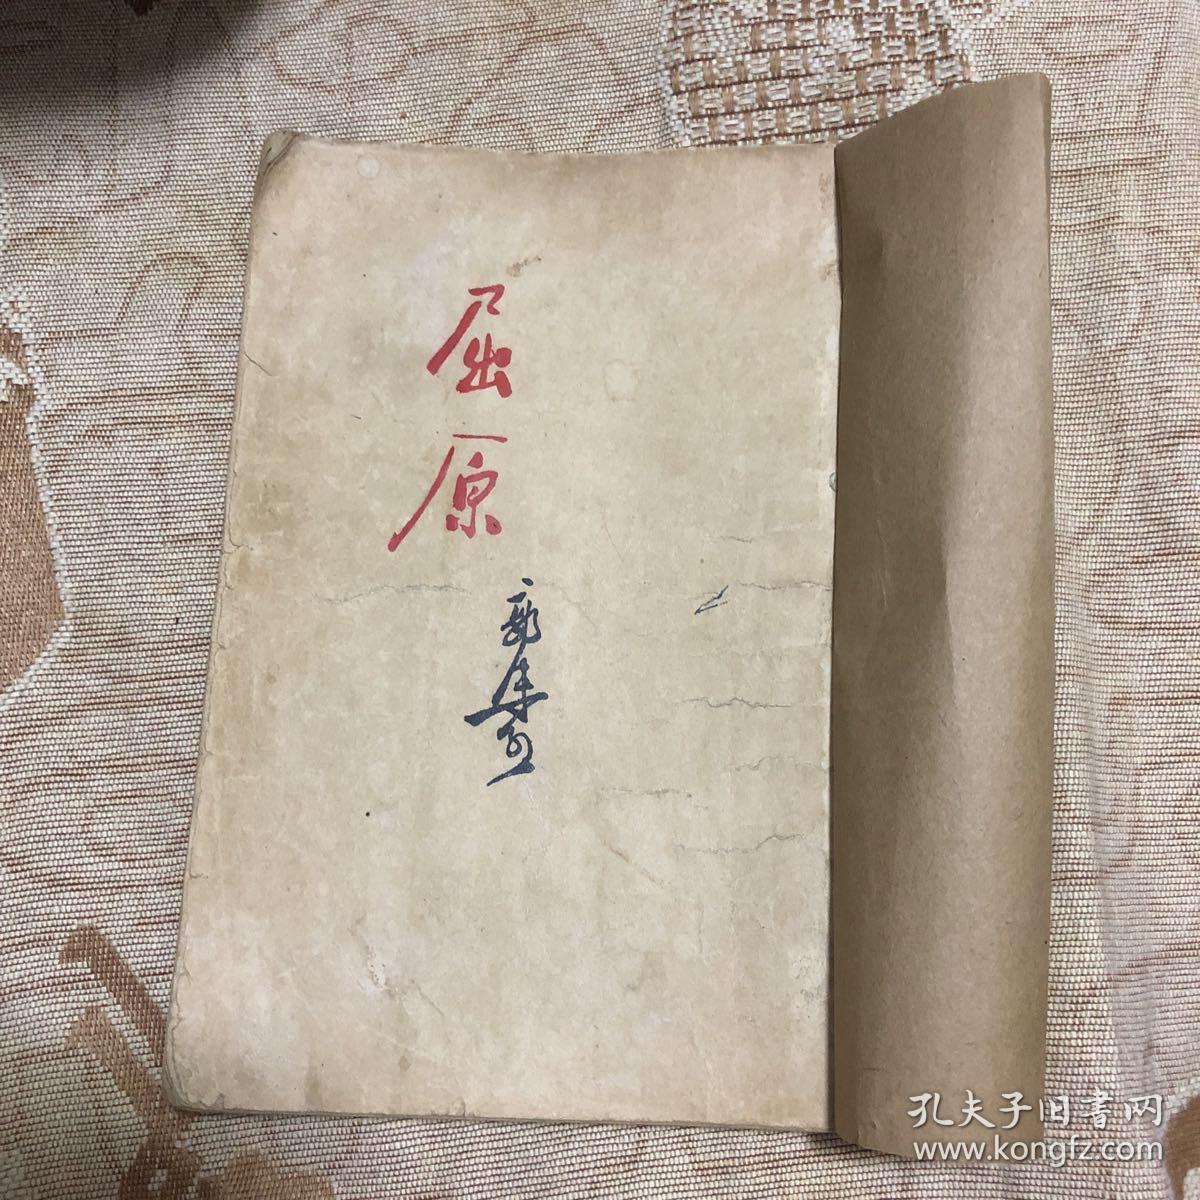 屈原
郭沫若
孔夫子旧書网
www.kongfz.com